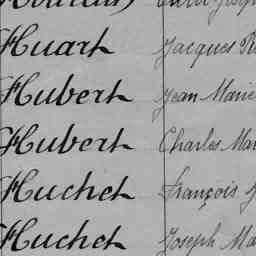 Huart Jacques
Hubert Jean Marie
Hubert Charles
Huchet François
Huchet Joseph